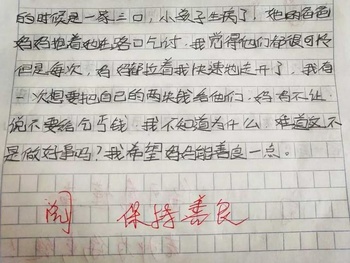 的时候是一家三口，小孩子生病了，她的爸爸
妈妈抱着她在路口乞讨。我觉得他们都很可怜
但是每次，妈妈都拉着我快速地走开了，我有
一次想要把自己的两块钱给他们，妈妈不让
说不要给乞丐钱。我不知道为什么，难道这不
是做好事吗？我希望妈妈能善良一点。
阅 保持善良